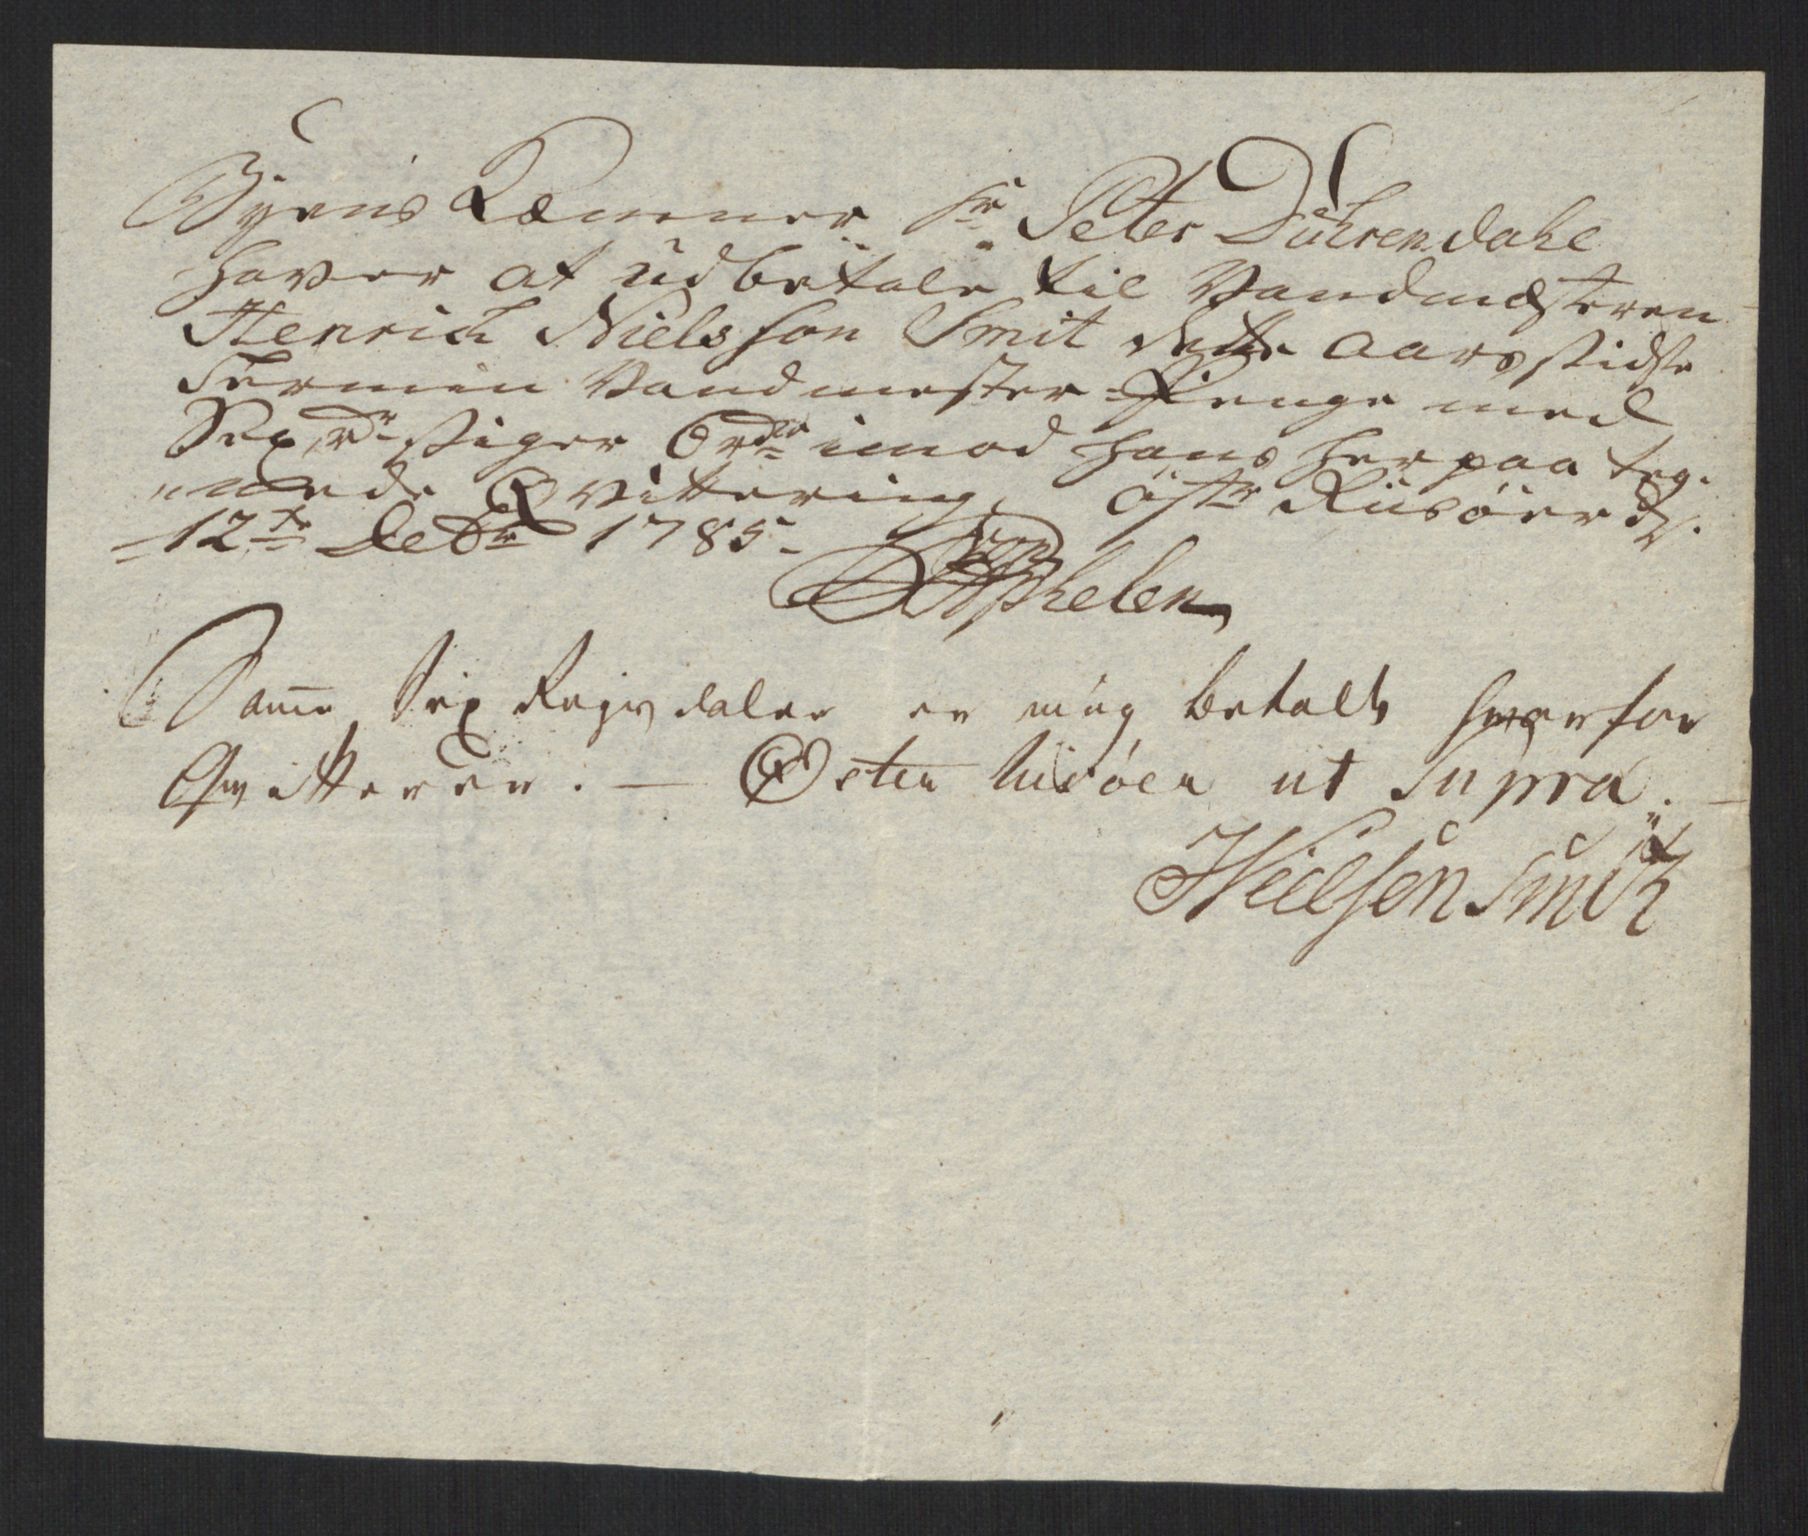 Byens Kæmner Hr Peter Dührendahl
haver at udbetale til Vandmesteren
Henrich Nielssøn Smit dette Aars sidste
Termin Vandmester-Penge med
Sex rdr siger 6 rdr imod hans herpaa teg-
nede Qvittering, Østr Riisøer d.
12te Decbr 1785.
Aphelen
Samme Sex Regsdaler er mig betalt hvorfor
Qvitterer. — Øster Riisöer ut Supra. —
HNielsen Smith